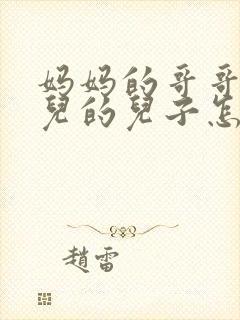 妈妈的哥哥
兒的兒子怎
趙雷